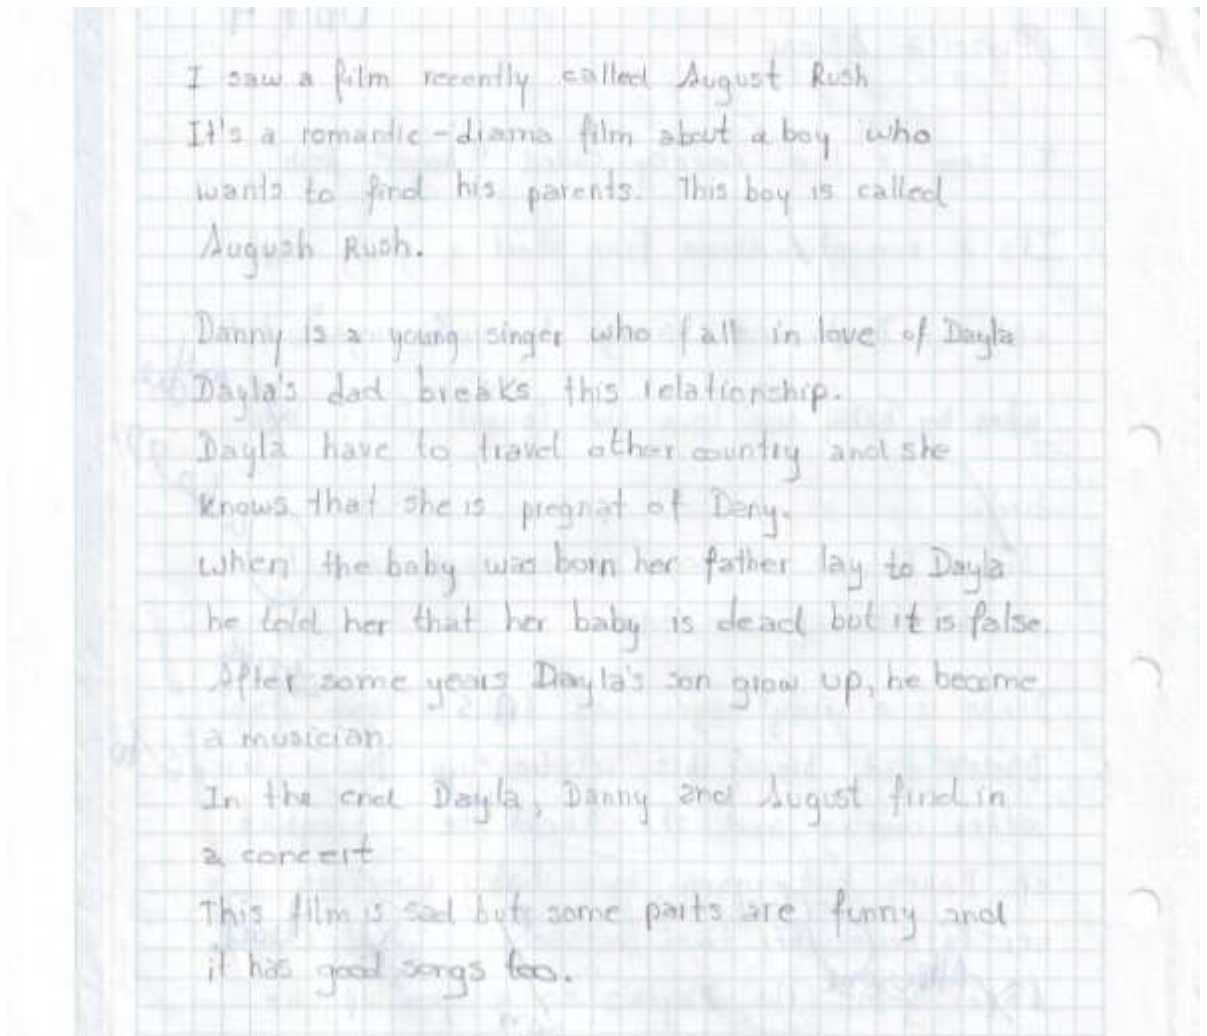 I saw a film recently called August Rush
It's a romantic-drama film about a boy who
wants to find his parents. This boy is called
Augush Rush.
Danny is a young singer who fall in love of Dayla
Dayla's dad breaks this relationship.
Dayla have to travel other country and she
knows that she is pregnat of Dany.
when the baby was born her father lay to Dayla
he told her that her baby is dead but it is false.
After some years Dayla's son grow up, he become
a musician.
In the end Dayla, Danny and August find in
a concert
This film is sad but some parts are funny and
it has good songs too.